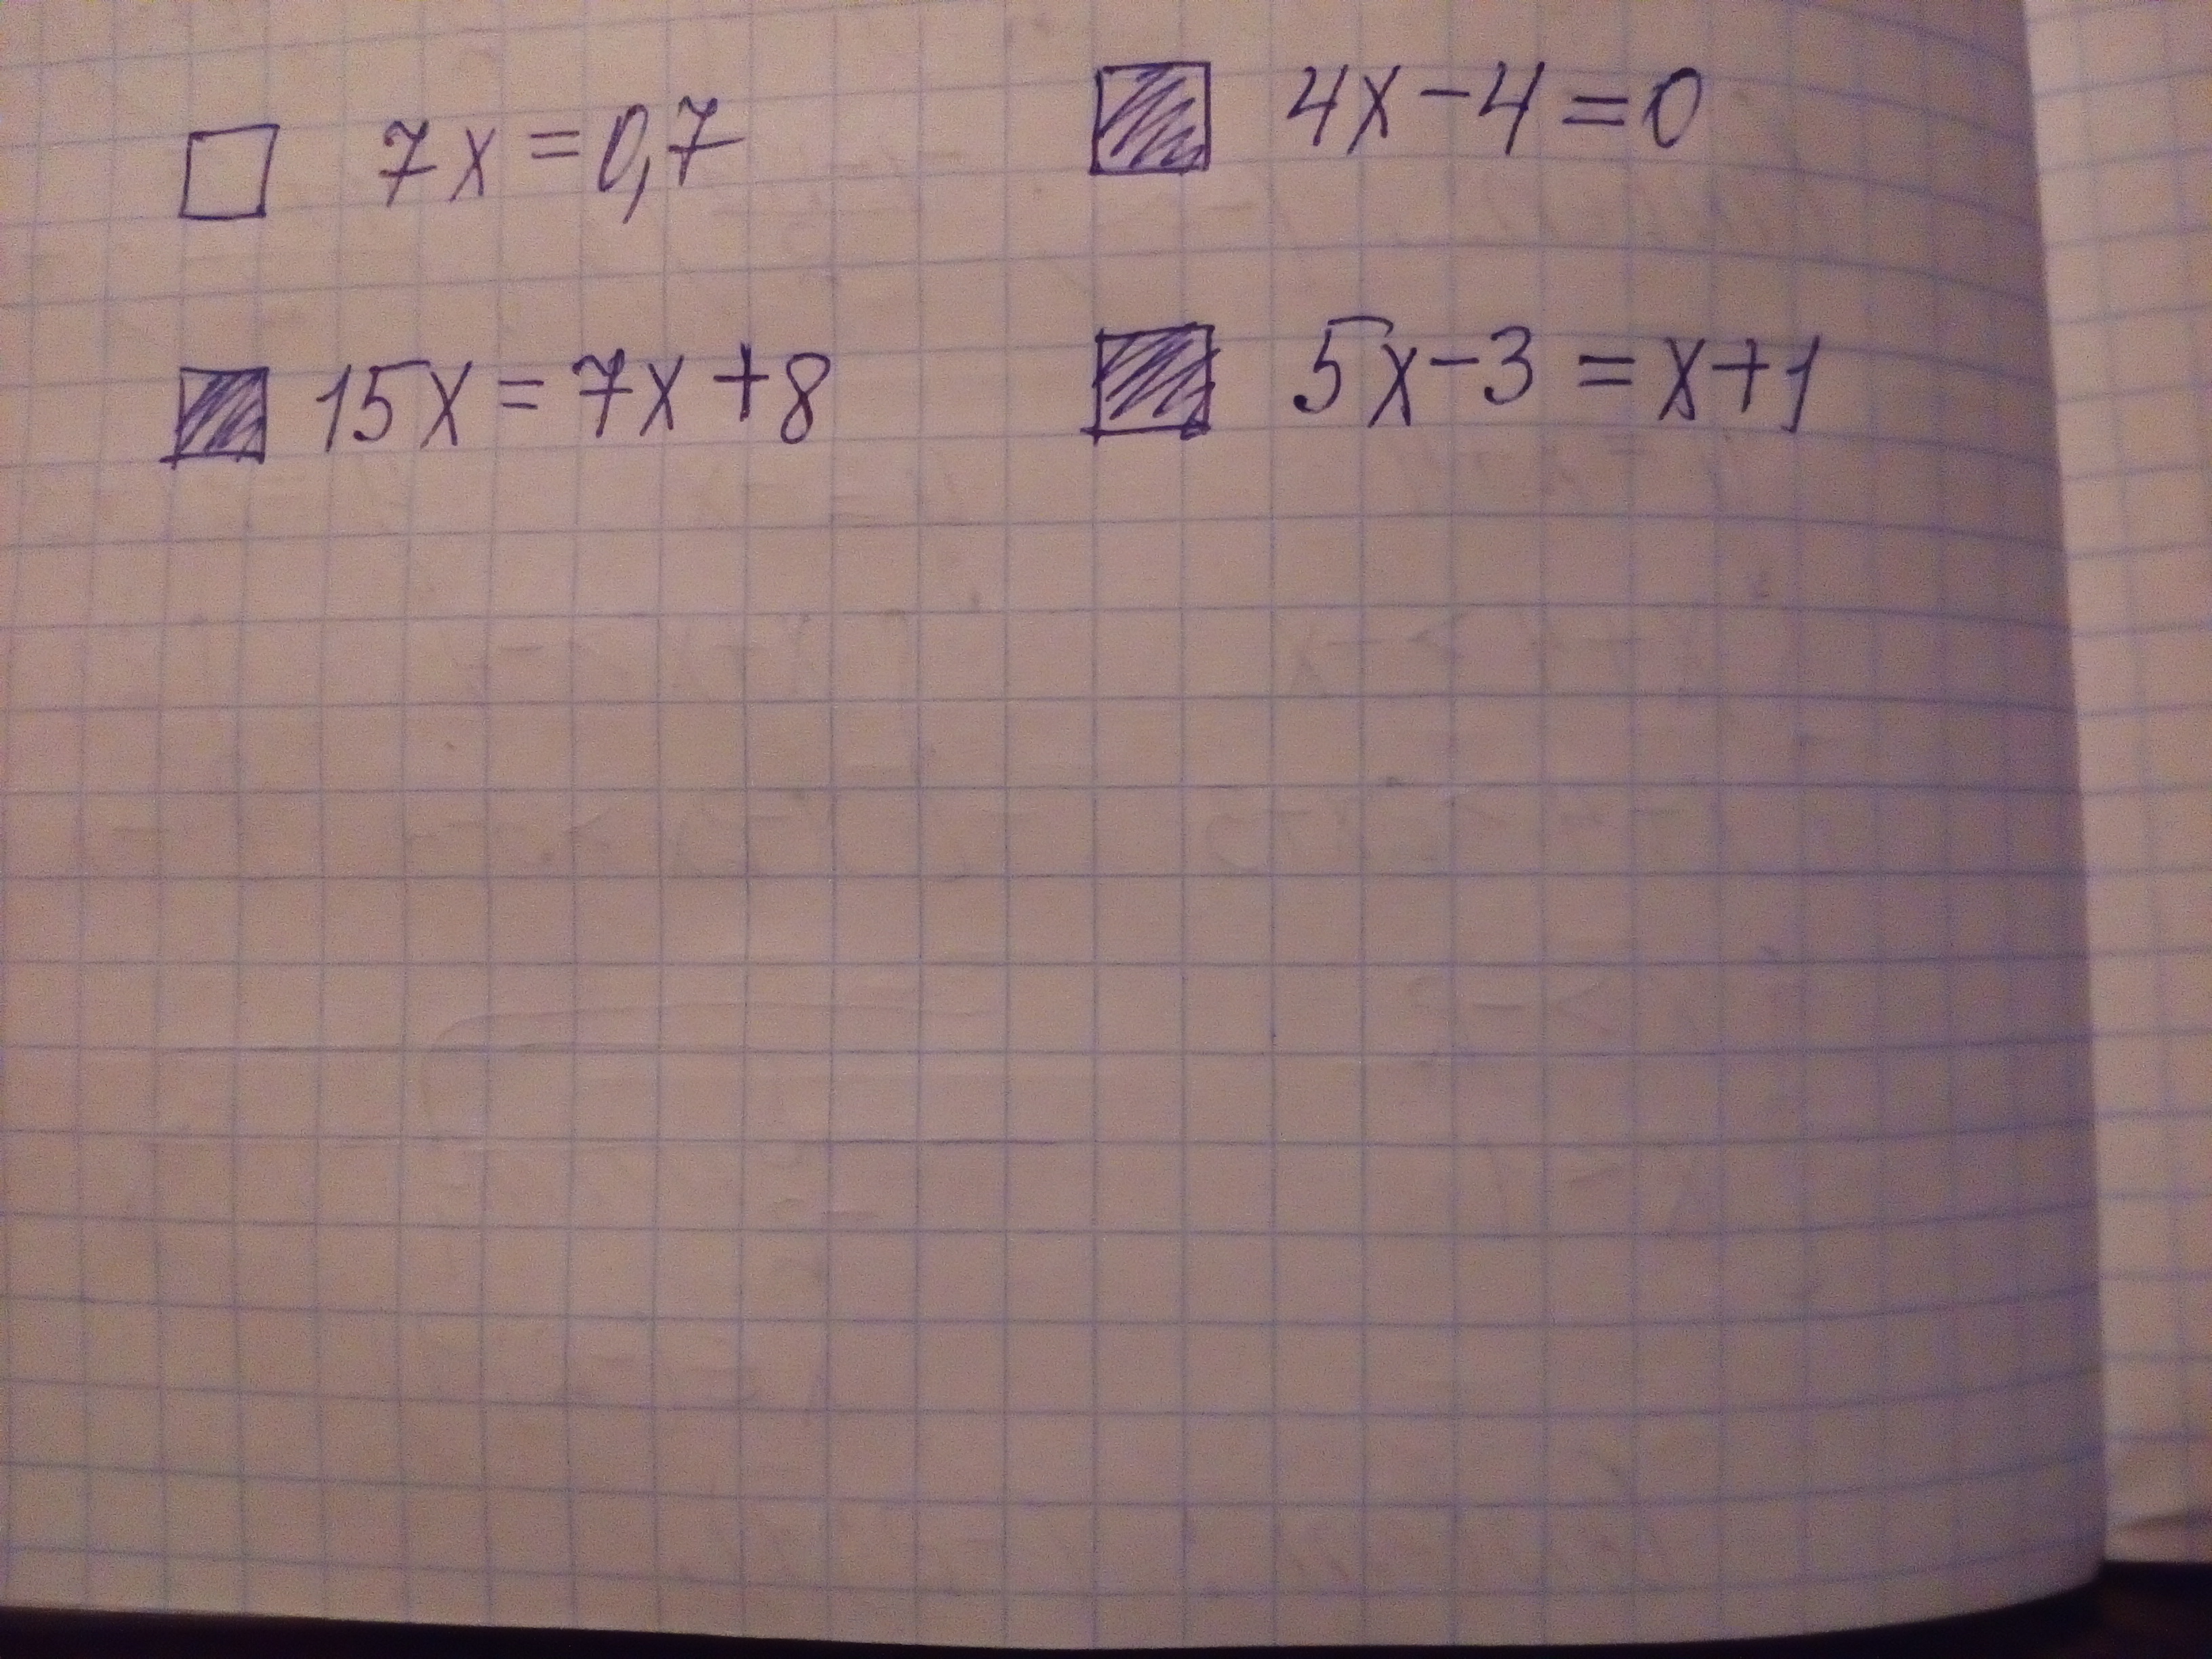 7x = 0,7
4x - 4 = 0
15x = 7x + 8
5x - 3 = x + 1